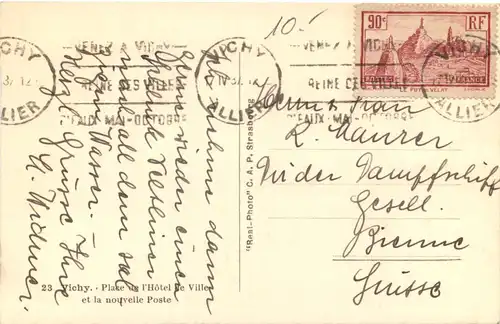 10.-
90c RF
LE PUY-EN-VELAY
VICHY
ALLIER
VENEZ A VICHY
REINE DES VILLES
D'EAUX MAI-OCTOBRE
VICHY
ALLIER
VENEZ A VICHY
REINE DES VILLES
D'EAUX MAI-OCTOBRE
VICHY
ALLIER
dann
gerne wieder einen
Veltliner
nach all dem
Wasser. –
Herzl. Grüsse Ihre
E. Widmer.
"Real-Photo" C. A. P. Strasbourg
Herrn & Frau
R. Maurer
Dampfschiff
Gesell.
Bienne
Suisse
23 Vichy. - Place de l'Hôtel de Ville
et la nouvelle Poste